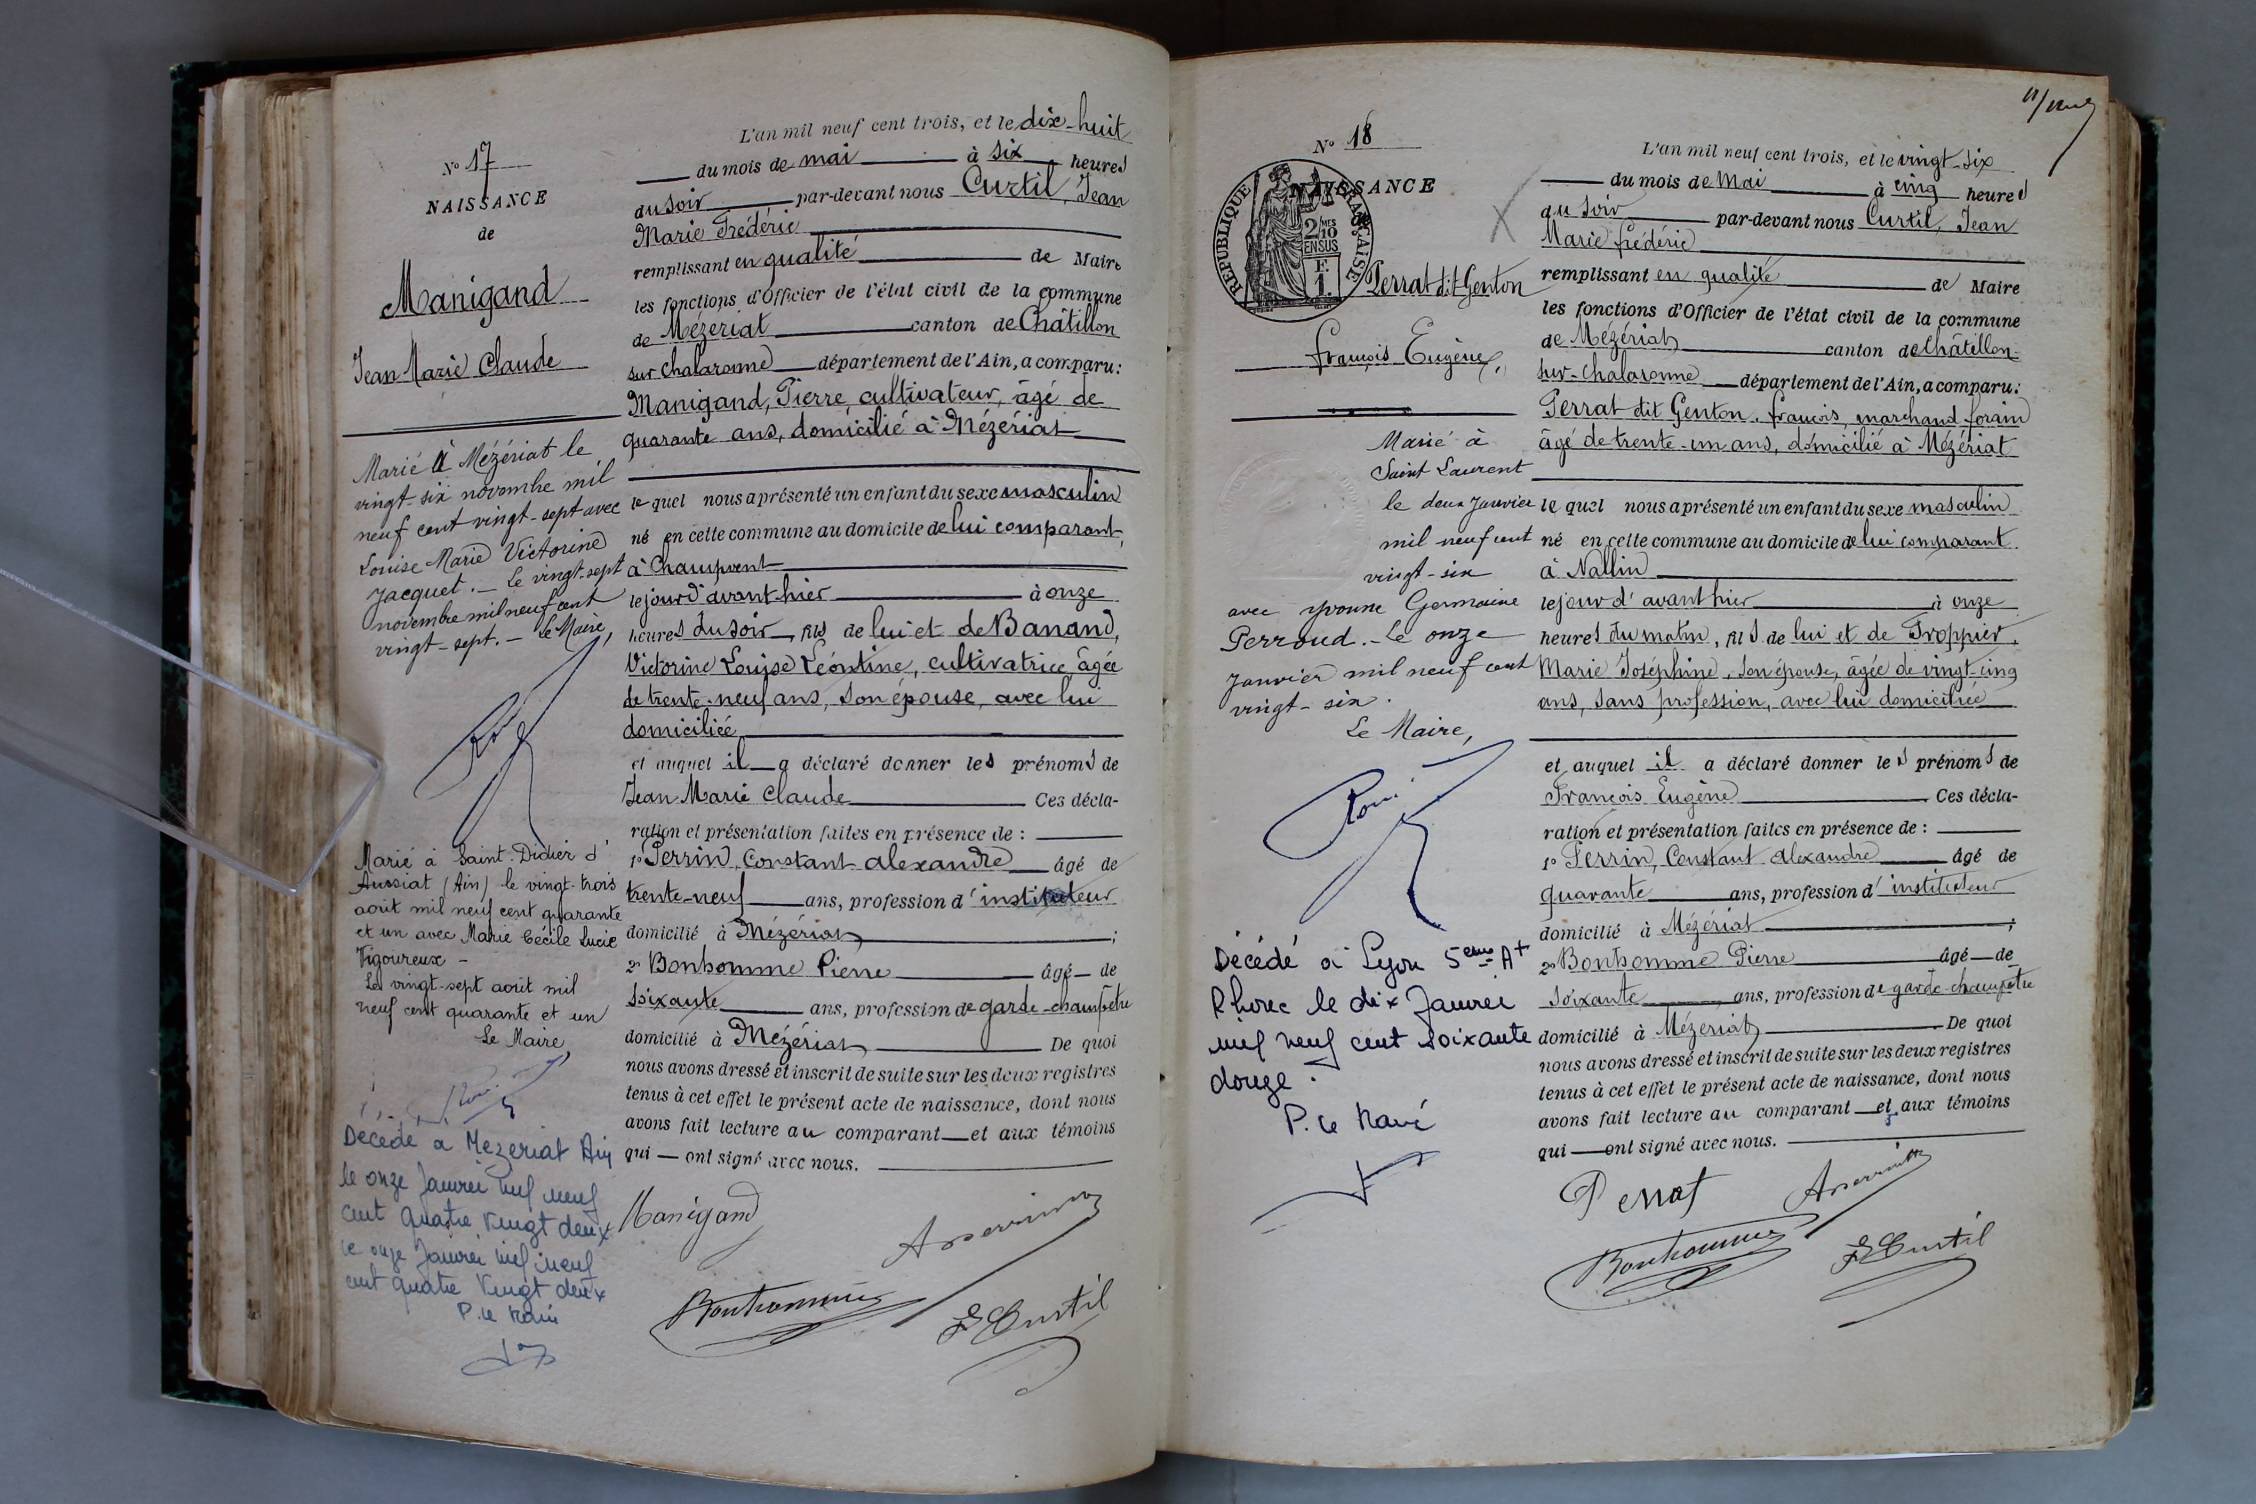 N° 17
NAISSANCE
de
Manigand
Jean Marie Claude
Marié à Mézériat le
vingt-six novembre mil
neuf cent vingt-sept avec
Louise Marie Victorine
Jacquet. — Le vingt-sept
novembre mil neuf cent
vingt-sept. — Le Maire,
Marié à Saint-Didier d'
Aussiat (Ain) le vingt-trois
août mil neuf cent quarante
et un avec Marie Cécile Lucie
Vigoureux —
Le vingt-sept août mil
neuf cent quarante et un
Le Maire
Décédé à Mézériat Ain
le onze Janvier mil neuf
cent quatre vingt deux
le onze Janvier mil neuf
cent quatre vingt deux
P. le Maire
L'an mil neuf cent trois, et le dix-huit
du mois de mai à six heures
du soir par-devant nous Curtil, Jean
Marie Frédéric
remplissant en qualité de Maire
les fonctions d'Officier de l'état civil de la commune
de Mézériat canton de Châtillon
sur Chalaronne département de l'Ain, a comparu:
Manigand, Pierre, cultivateur, âgé de
quarante ans, domicilié à Mézériat
le quel nous a présenté un enfant du sexe masculin
né en cette commune au domicile de lui comparant,
à Champvent
le jour d'avant-hier à onze
heures du soir, fils de lui et de Banand,
Victorine Louise Léontine, cultivatrice, âgée
de trente-neuf ans, son épouse, avec lui
domiciliée
et auquel il a déclaré donner les prénoms de
Jean Marie Claude Ces décla-
ration et présentation faites en présence de :
1° Perrin, Constant Alexandre âgé de
trente-neuf ans, profession d'instituteur
domicilié à Mézériat ;
2° Bonhomme Pierre âgé de
soixante ans, profession de garde-champêtre
domicilié à Mézériat De quoi
nous avons dressé et inscrit de suite sur les deux registres
tenus à cet effet le présent acte de naissance, dont nous
avons fait lecture au comparant et aux témoins
qui ont signé avec nous.
Manigand
Bonhomme
F Curtil
N° 18
NAISSANCE
RÉPUBLIQUE FRANÇAISE
2/10
EN SUS
F.
1.
Perrat dit Genton
François Eugène,
Marié à
Saint Laurent
le deux Janvier
mil neuf cent
vingt-six
avec Yvonne Germaine
Perroud. — Le onze
Janvier mil neuf cent
vingt-six.
Le Maire,
Décédé à Lyon 5eme At
Rhône le dix Janvier
mil neuf cent soixante
douze.
P. le Maire
L'an mil neuf cent trois, et le vingt-six
du mois de Mai à cinq heures
du soir par-devant nous Curtil, Jean
Marie Frédéric
remplissant en qualité de Maire
les fonctions d'Officier de l'état civil de la commune
de Mézériat canton de Châtillon-
sur-Chalaronne département de l'Ain, a comparu:
Perrat dit Genton, François, marchand forain
âgé de trente-un ans, domicilié à Mézériat
le quel nous a présenté un enfant du sexe masculin
né en cette commune au domicile de lui comparant
à Nallin
le jour d'avant hier à onze
heures du matin, fils de lui et de Troppier,
Marie Joséphine, son épouse, âgée de vingt-cinq
ans, sans profession, avec lui domiciliée
et auquel il a déclaré donner les prénoms de
François Eugène Ces décla-
ration et présentation faites en présence de :
1° Perrin, Constant Alexandre âgé de
quarante ans, profession d'instituteur
domicilié à Mézériat ;
2° Bonhomme Pierre âgé de
soixante ans, profession de garde-champêtre
domicilié à Mézériat De quoi
nous avons dressé et inscrit de suite sur les deux registres
tenus à cet effet le présent acte de naissance, dont nous
avons fait lecture au comparant et aux témoins
qui ont signé avec nous.
Perrat
Bonhomme
F Curtil